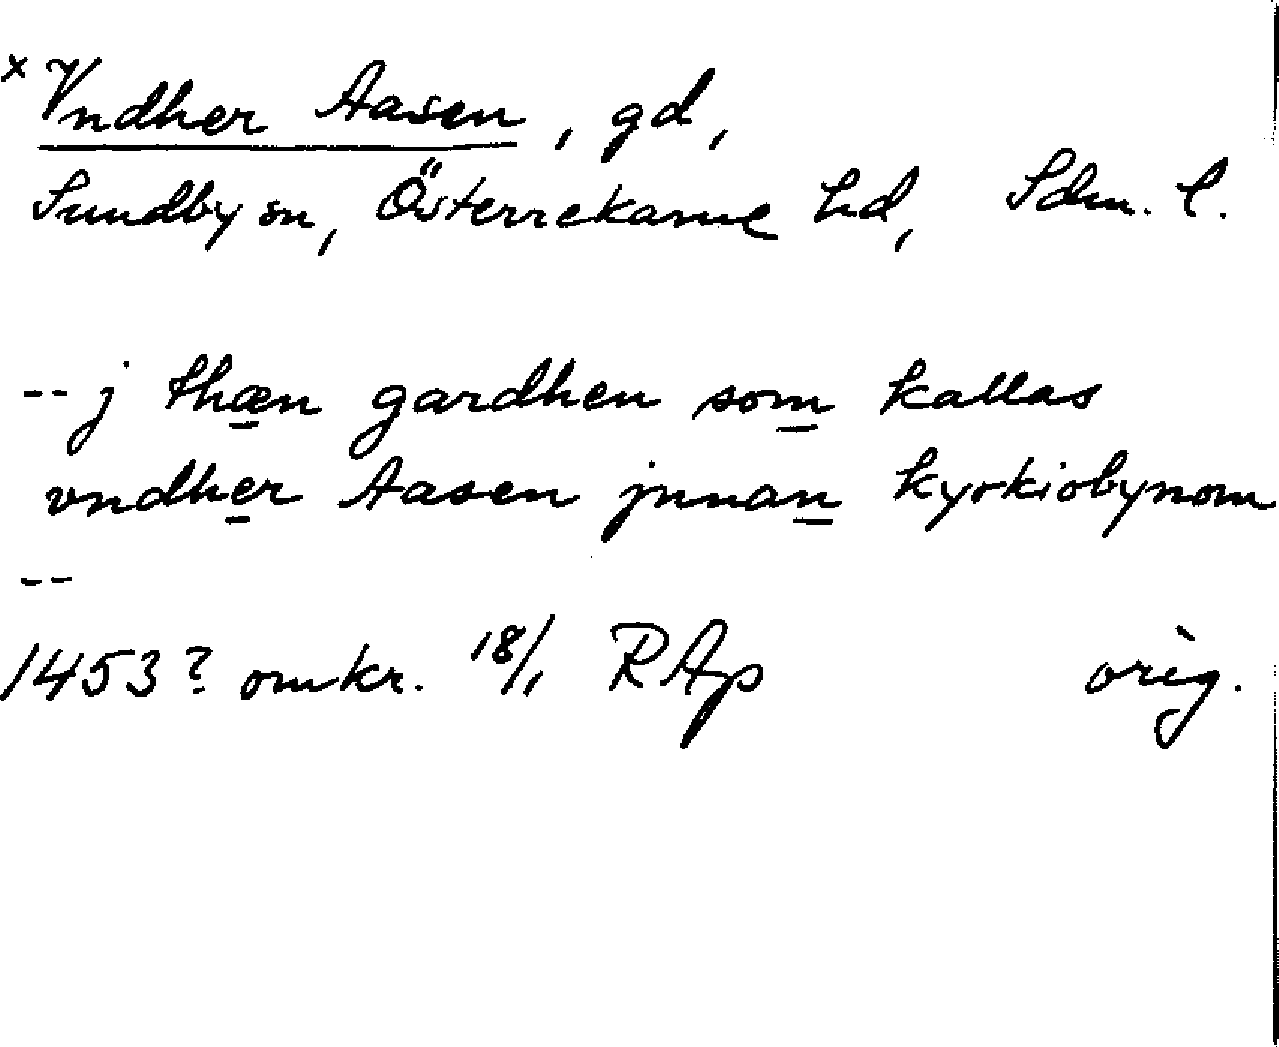 x Vndher Aasen, gd,
Sundby sn, Österrekarne hd, Sdm. l.
-- j thæn gardhen som kallas
vndher Aasen jnnan kyrkiobynom
--
1453? omkr. 18/1 RAp orig.